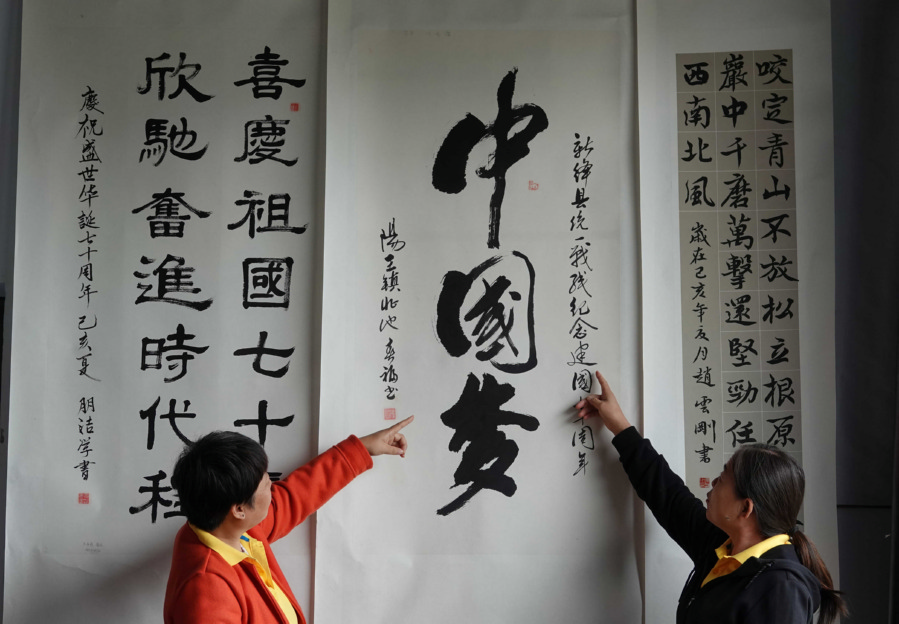 咬定青山不放松立根原
巖中千磨萬擊還堅勁任
西南北風
歲在己亥年月趙雲剛書
新绛县统一战线纪念建國十周年
中國梦
陽王镇北池春福书
喜慶祖國七十
欣馳奮進時代程
慶祝盛世华誕七十周年 己亥夏 学書